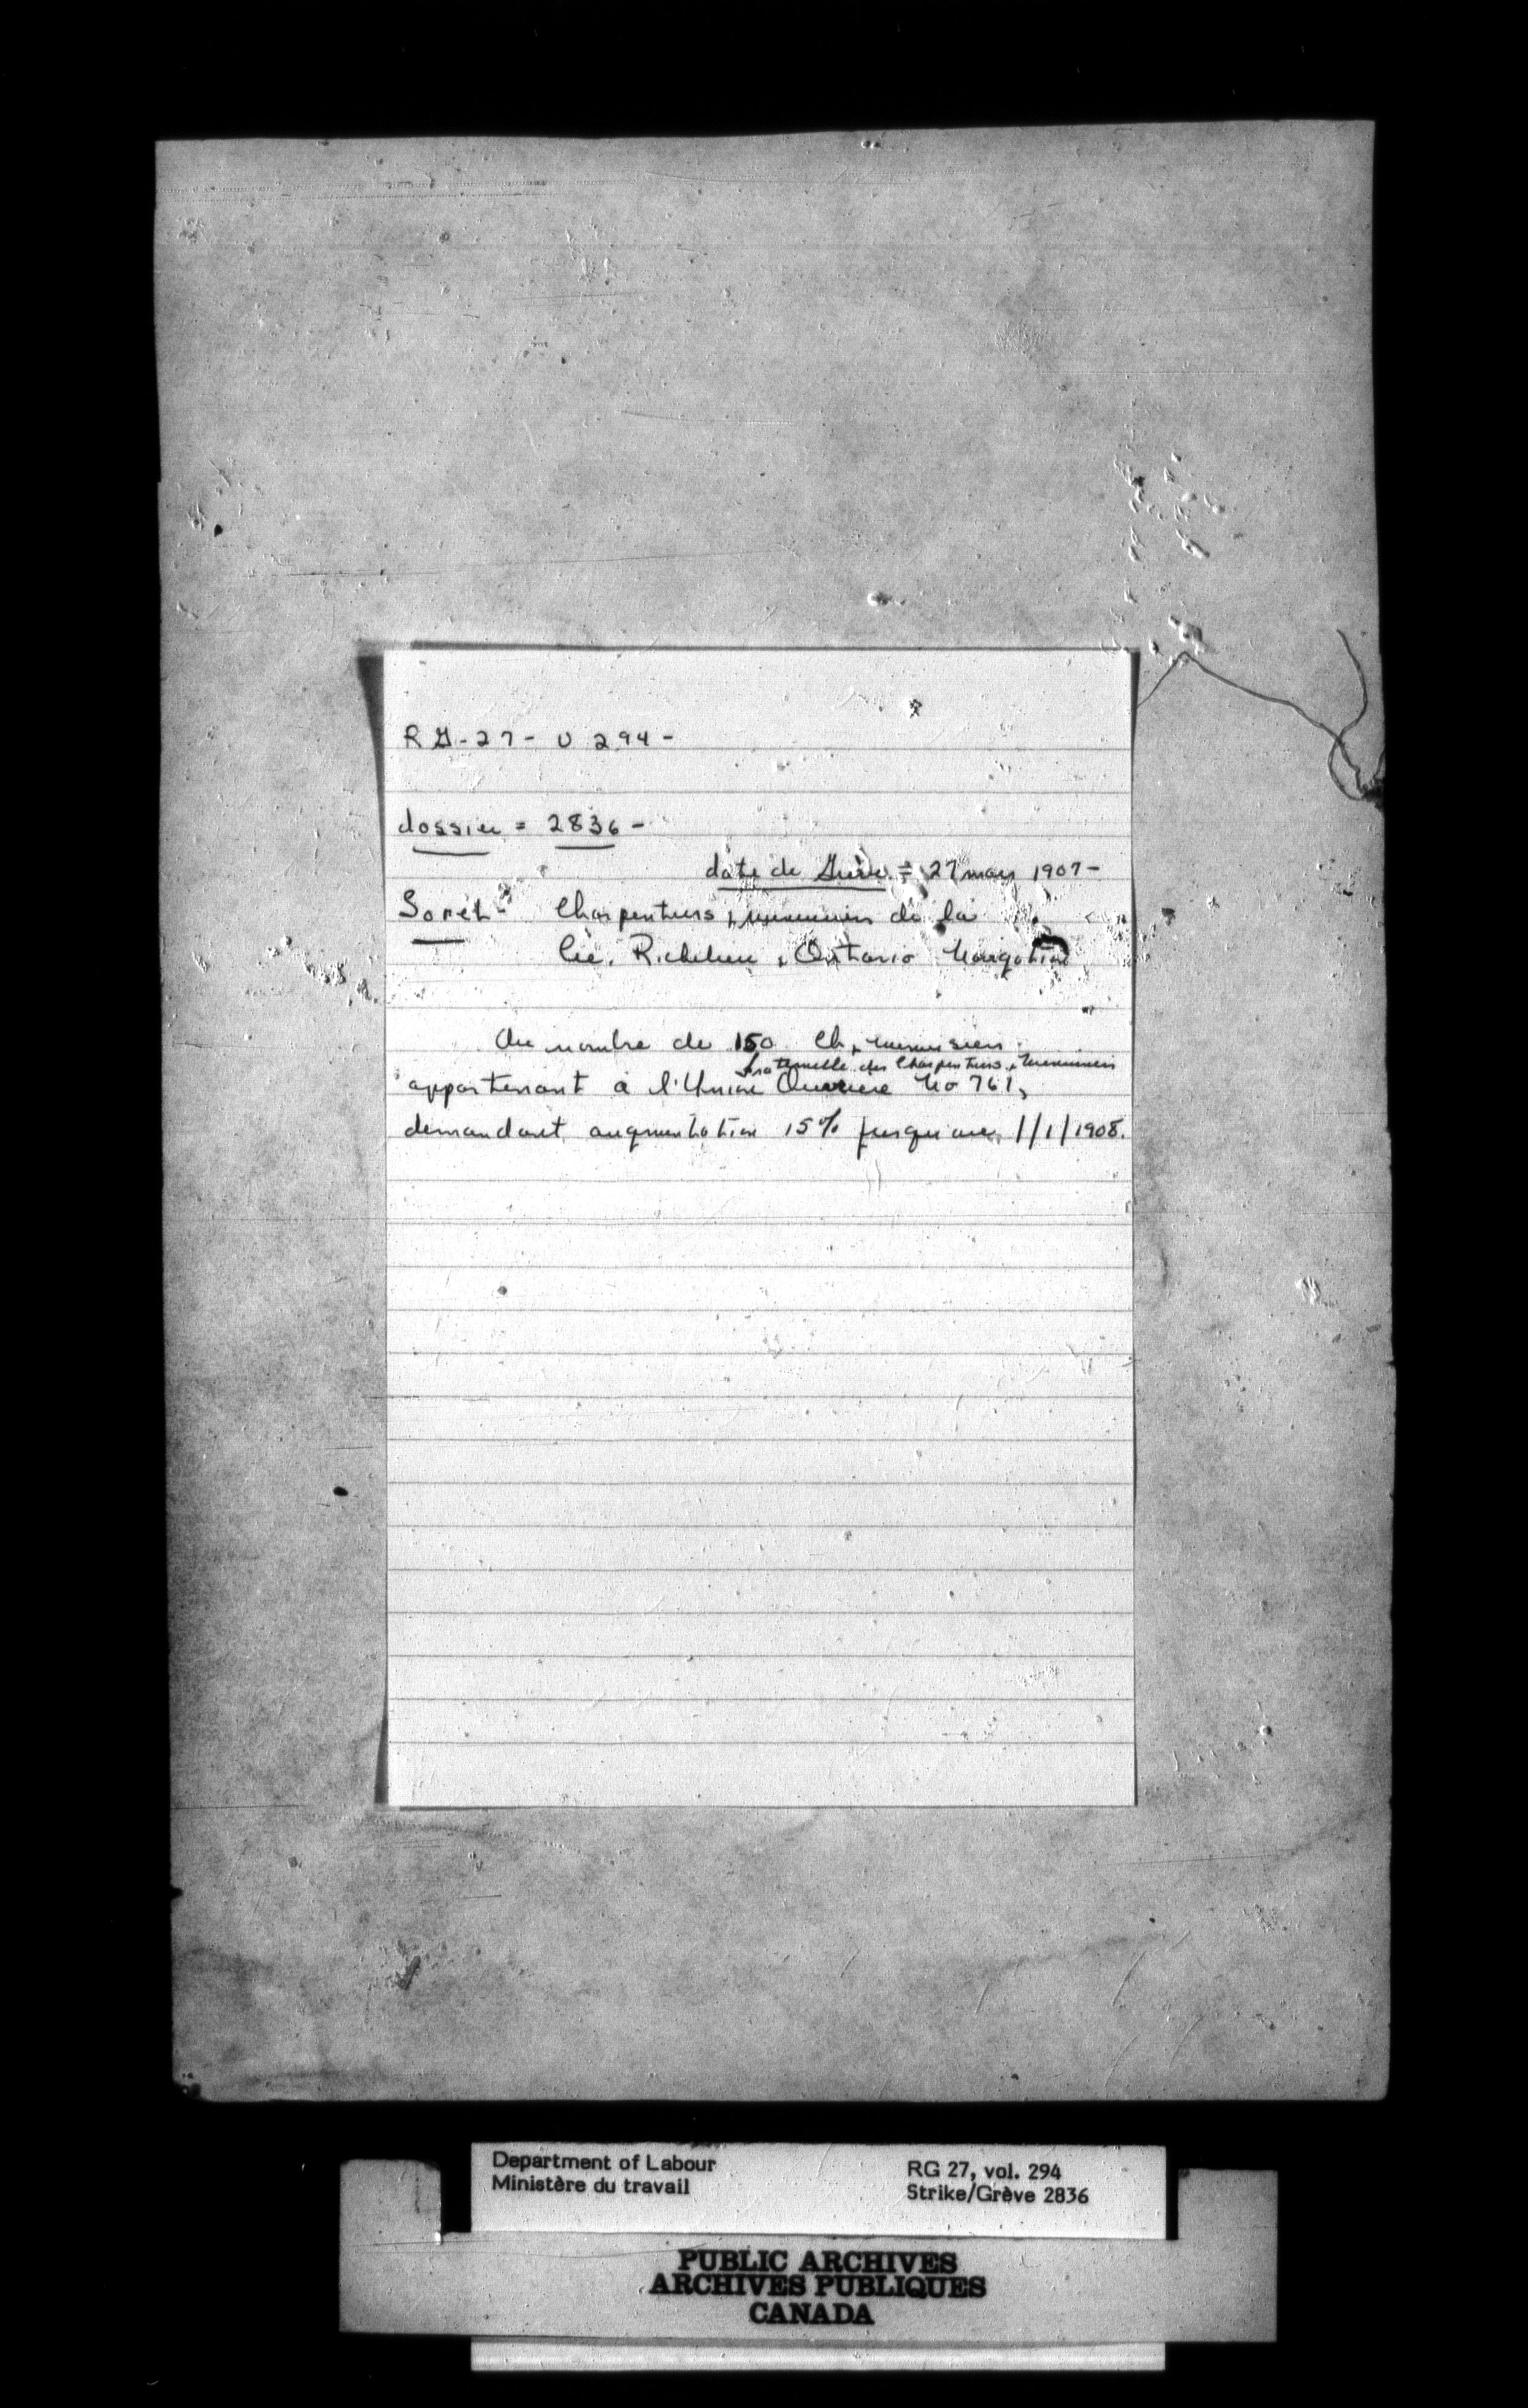 RG-27- V 294-
dossier = 2836-
date de Grève = 27 mars 1907-
Sorel- Charpentiers & menuisiers de la
Cie. Richelieu & Ontario Navigation
Au nombre de 150 Ch. & menuisiers
fraternelle des Charpentiers & Menuisiers
appartenant à l'Union Ouvriere No 761,
demandant augmentation 15% jusqu'au 1/1/1908.
Department of Labour
Ministère du travail
RG 27, vol. 294
Strike/Grève 2836
PUBLIC ARCHIVES
ARCHIVES PUBLIQUES
CANADA